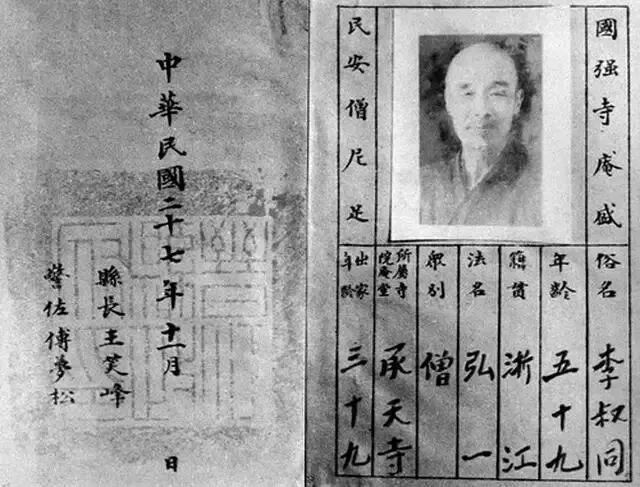 國強寺庵盛
民安僧尼足
俗名 李叔同
年齡 五十九
籍貫 浙江
法名 弘一
眾別 僧
所屬寺院庵堂 承天寺
出家年齡 三十九
中華民國二十七年十一月 日
縣長王笑峰
警佐傅夢松